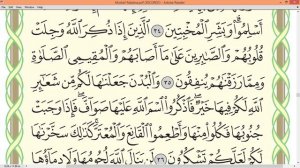 Adobe Reader
أَسْلِمُوا۟ وَبَشِّرِ ٱلْمُخْبِتِينَ ٣٤ ٱلَّذِينَ إِذَا ذُكِرَ ٱللَّهُ وَجِلَتْ
قُلُوبُهُمْ وَٱلصَّـٰبِرِينَ عَلَىٰ مَآ أَصَابَهُمْ وَٱلْمُقِيمِى ٱلصَّلَوٰةِ
وَمِمَّا رَزَقْنَـٰهُمْ يُنفِقُونَ ٣٥ وَٱلْبُدْنَ جَعَلْنَـٰهَا لَكُم مِّن شَعَـٰٓئِرِ
ٱللَّهِ لَكُمْ فِيهَا خَيْرٌ فَٱذْكُرُوا۟ ٱسْمَ ٱللَّهِ عَلَيْهَا صَوَآفَّ فَإِذَا وَجَبَتْ
جُنُوبُهَا فَكُلُوا۟ مِنْهَا وَأَطْعِمُوا۟ ٱلْقَانِعَ وَٱلْمُعْتَرَّ كَذَٰلِكَ سَخَّرْنَـٰهَا
لَكُمْ لَعَلَّكُمْ تَشْكُرُونَ ٣٦ لَن يَنَالَ ٱللَّهَ لُحُومُهَا وَلَا دِمَآؤُهَا